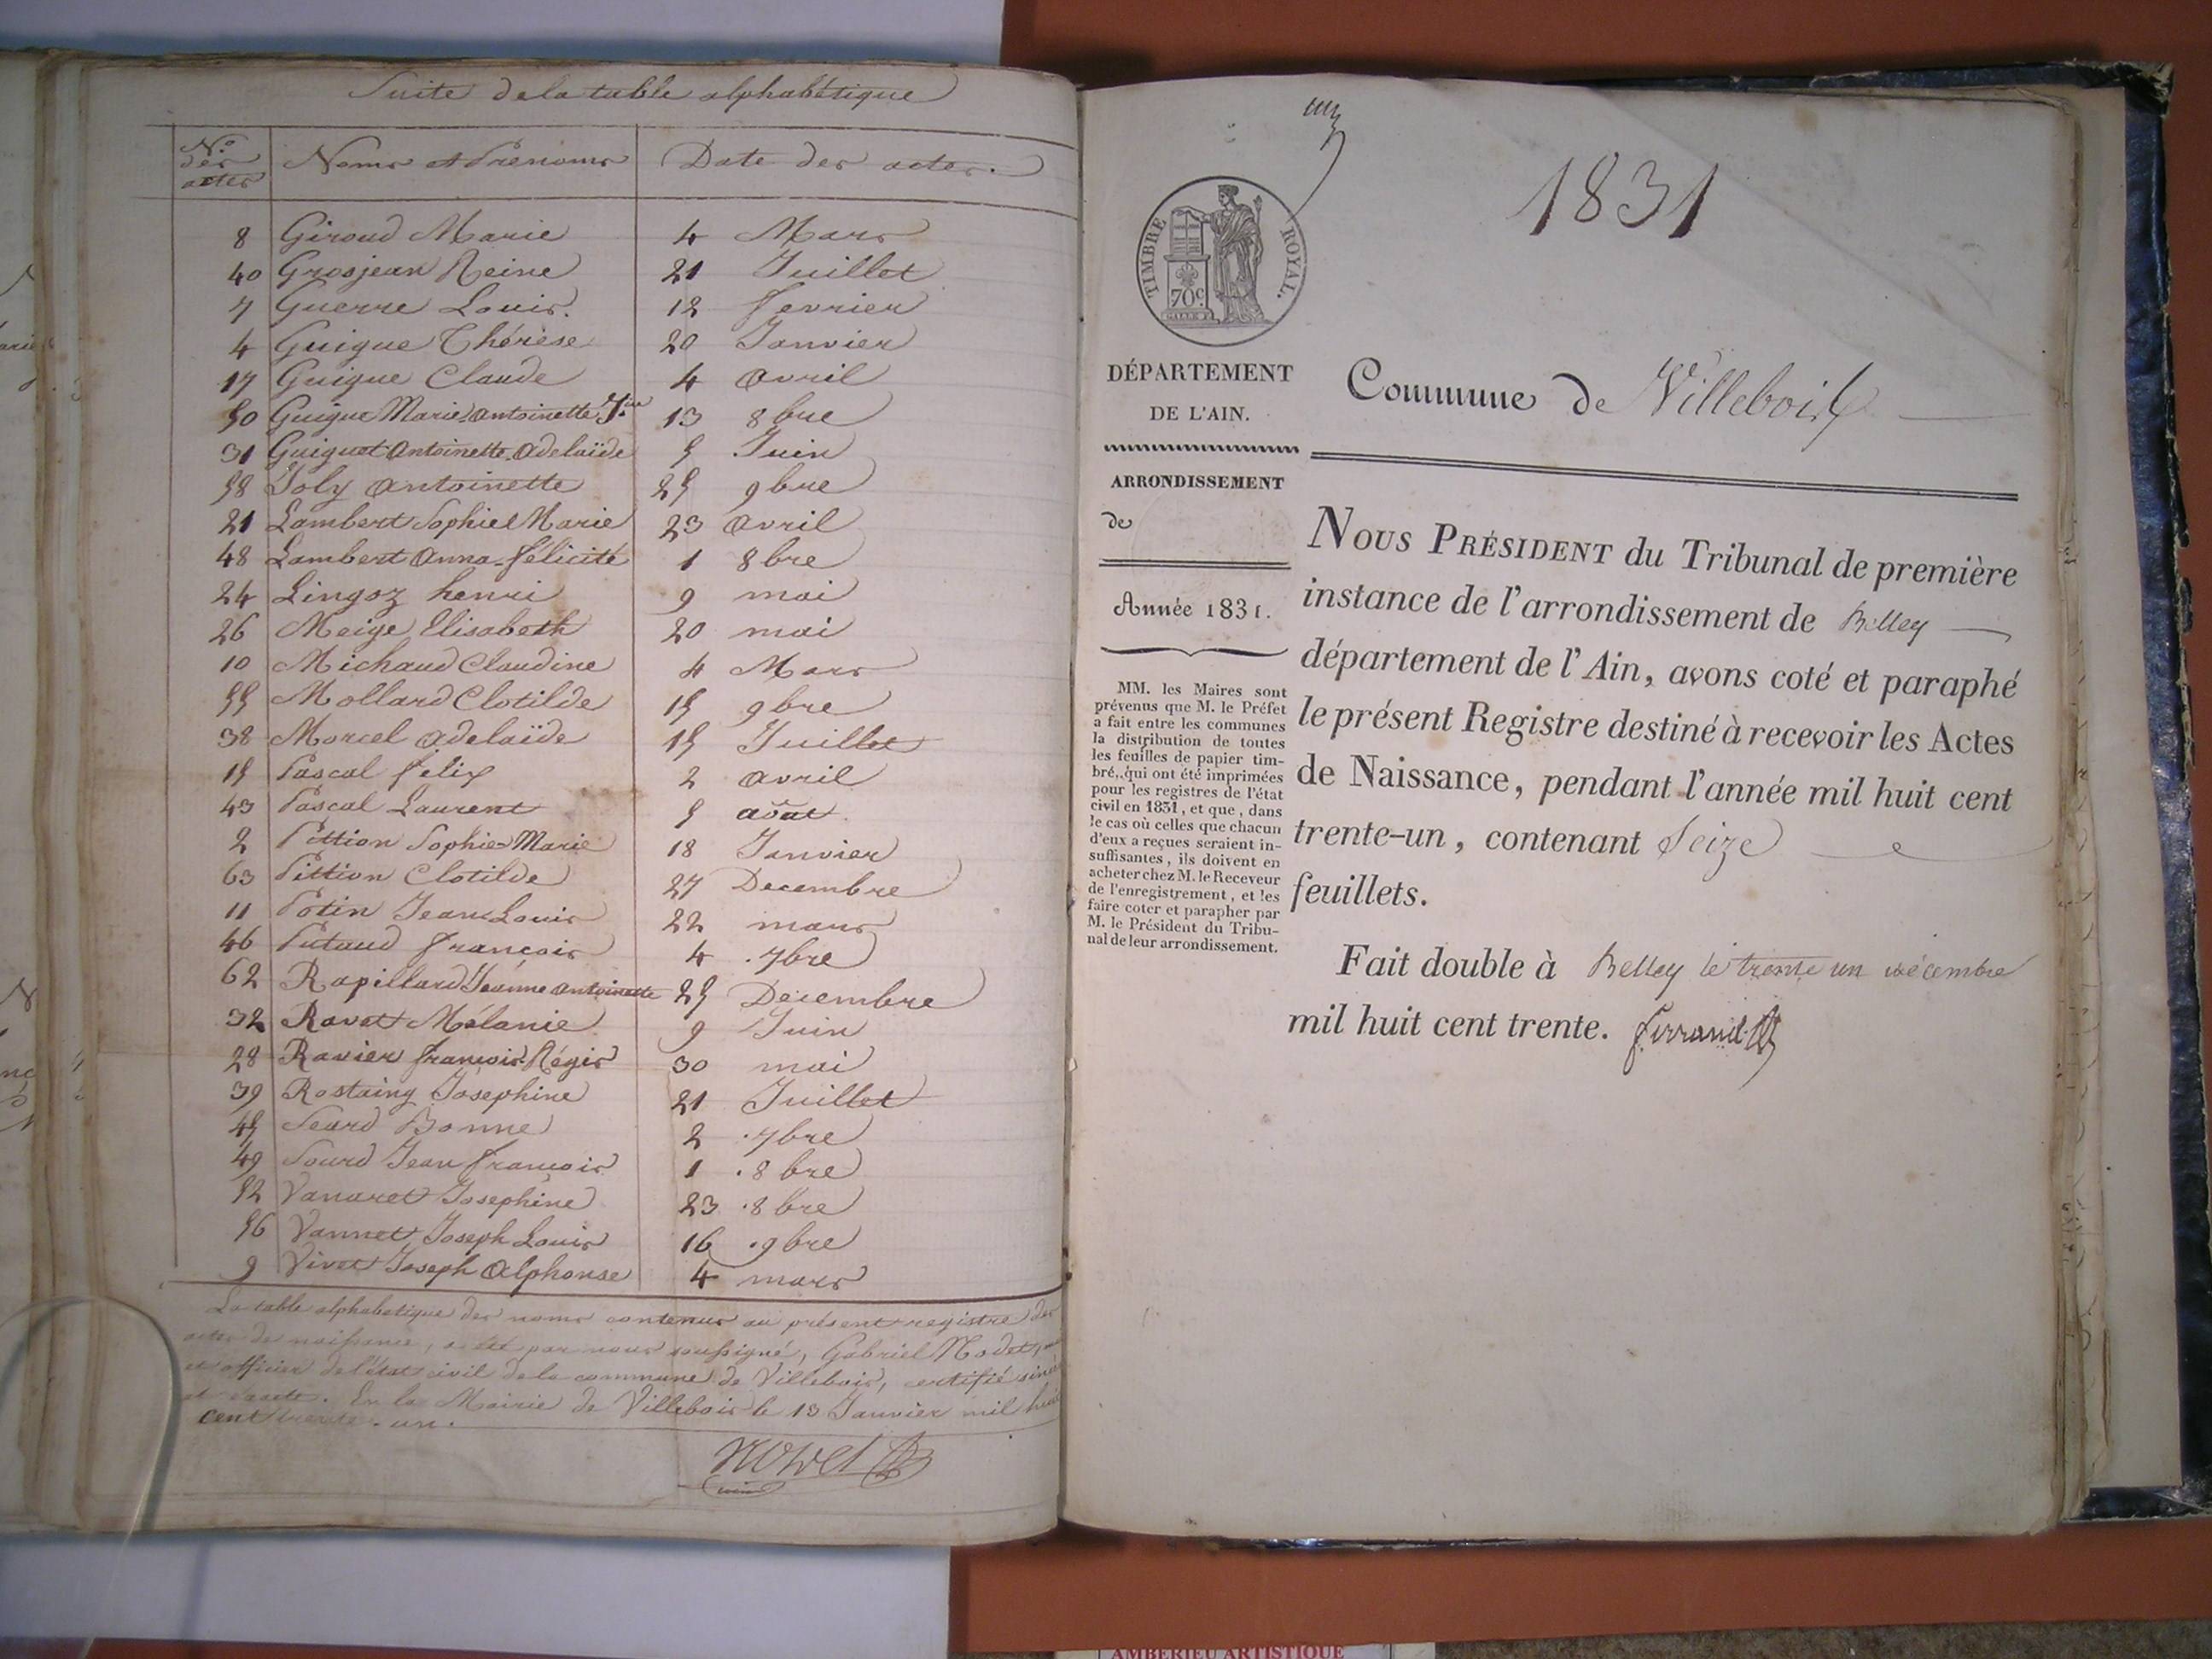 Suite de la table alphabétique
N.o des actes | Noms et Prenoms | Date des actes.
8 Giroud Marie 4 Mars
40 Grosjean Reine 21 Juillet
7 Guerre Louis. 12 fevrier
4 Guigue Thérèse 20 Janvier
17 Guigue Claude 4 avril
50 Guigue Marie antoinette 13 8bre
31 Guiguet Antoinette adelaïde 5 Juin
58 Joly antoinette 25 9bre
21 Lambert Sophie Marie 23 avril
48 Lambert anna félicité 1 8bre
24 Lingoz henri 9 mai
26 Meige Elisabeth 20 mai
10 Michaud Claudine 4 Mars
55 Mollard Clotilde 15 9bre
38 Morcel adelaïde 15 Juillet
15 Pascal felix 2 avril
43 Pascal Laurent 5 août
2 Pittion Sophie Marie 18 Janvier
63 Pittion Clotilde 27 Decembre
11 Potin Jean Louis 22 mars
46 Putaud françois 4 .7bre
62 Rapillard Jeanne antoinette 25 Decembre
32 Ravet Mélanie 9 Juin
28 Ravier françois Régis 30 mai
39 Rostaing Josephine 21 Juillet
45 Seard Bonne 2 .7bre
49 Sourd Jean françois 1 .8bre
52 Vanaret Josephine 23 .8bre
56 Vannet Joseph Louis 16 .9bre
9 Vivet Joseph Alphonse 4 mars
La table alphabetique des noms contenus au présent registre des
actes de naissance, a été par nous soussigné, Gabriel Nodet,
et officier de l'état civil de la commune de Villebois, certifié
et exacte. En la Mairie de Villebois le 13 Janvier mil huit
cent trente-un.
1831
TIMBRE ROYAL.
70c.
DÉPARTEMENT
DE L'AIN.
Commune de Villebois
ARRONDISSEMENT
de
Année 1831.
MM. les Maires sont
prévenus que M. le Préfet
a fait entre les communes
la distribution de toutes
les feuilles de papier tim-
bré, qui ont été imprimées
pour les registres de l'état
civil en 1831, et que, dans
le cas où celles que chacun
d'eux a reçues seraient in-
suffisantes, ils doivent en
acheter chez M. le Receveur
de l'enregistrement, et les
faire coter et parapher par
M. le Président du Tribu-
nal de leur arrondissement.
NOUS PRÉSIDENT du Tribunal de première
instance de l'arrondissement de Belley
département de l'Ain, avons coté et paraphé
le présent Registre destiné à recevoir les Actes
de Naissance, pendant l'année mil huit cent
trente-un, contenant Seize
feuillets.
Fait double à Belley le trente un décembre
mil huit cent trente. Ferrand
AMBERIEU ARTISTIQUE